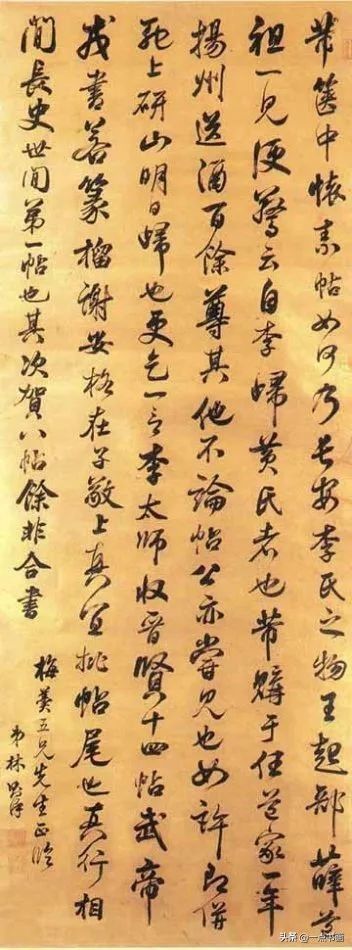 芾篋中懷素帖如何乃長安李氏之物王起部薛道
祖一見便驚云自李歸黃氏者也芾購于任道家一年
揚州送酒百餘尊其他不論帖公亦嘗見也如許即併
馳上研山明日歸也更乞一言李太師收晉賢十四帖武帝
戎書若篆籀謝安格在子敬上真宜批帖尾也真行相
間長史世間第一帖也其次賀八帖餘非合書
梅羹五兄先生正臨
弟林則徐
头条 @一点书画